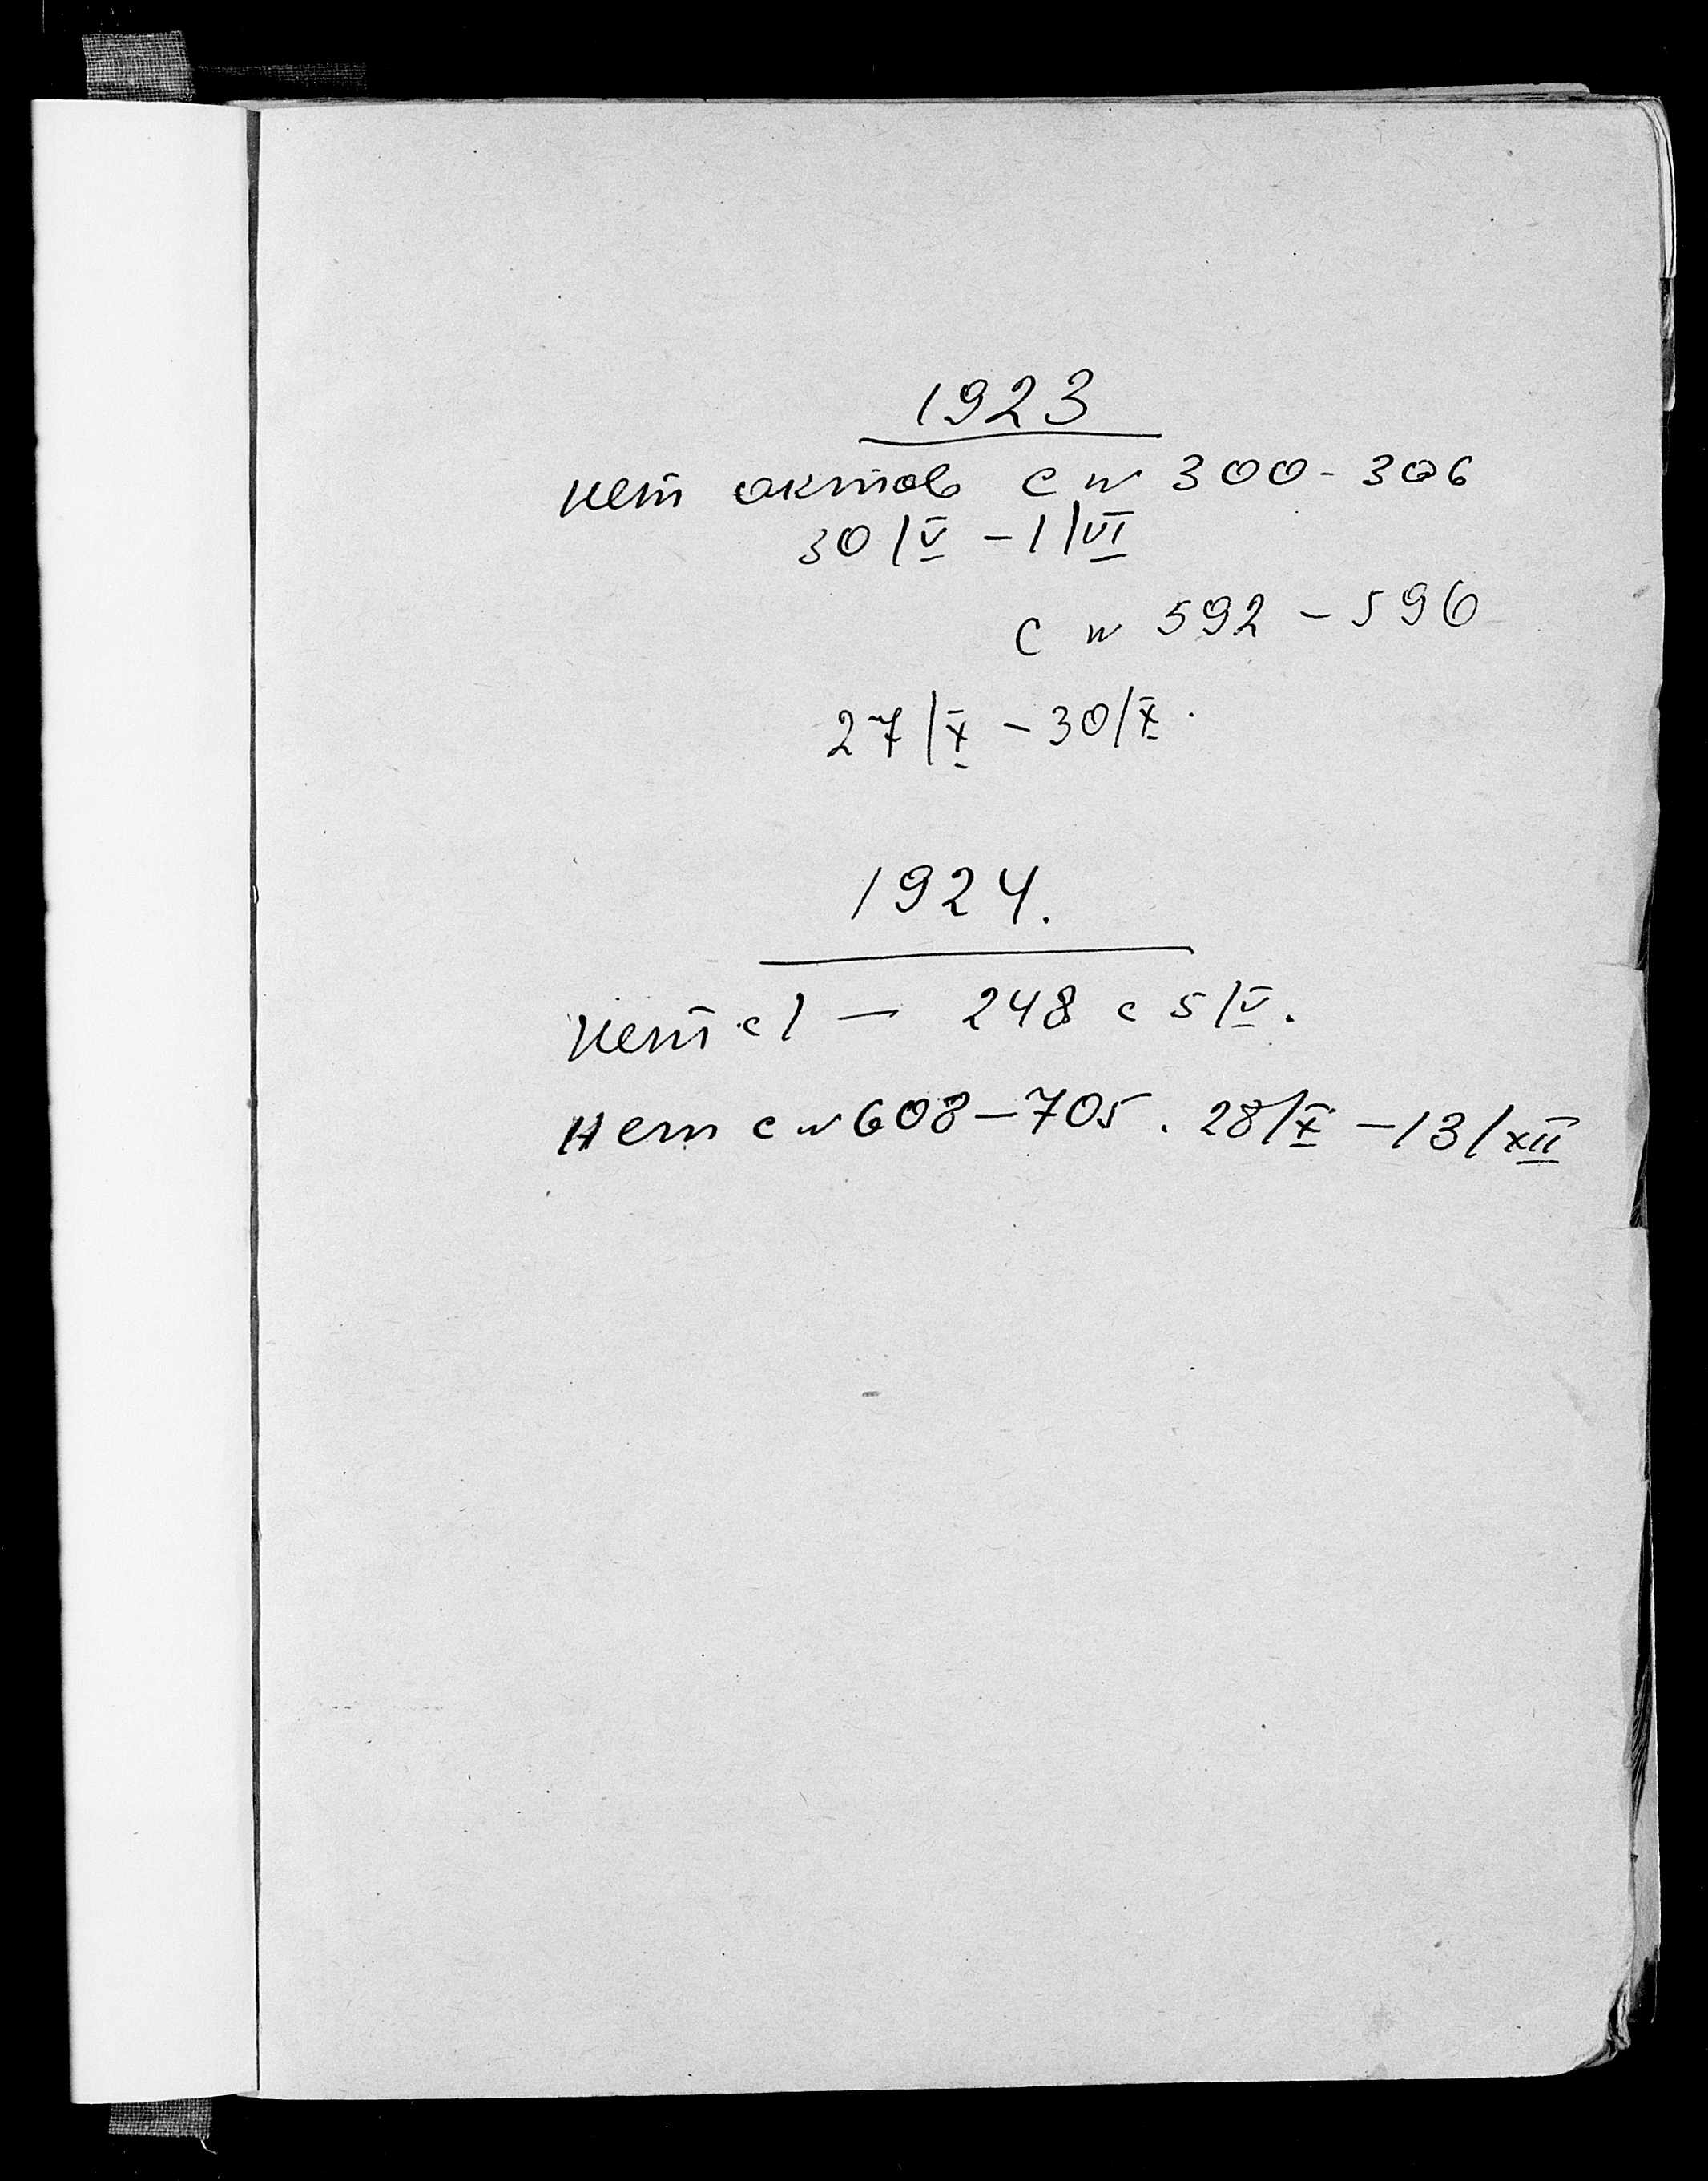 1923
нет актов с N 300-306
30/V - 1/VI
с N 592 - 596
27/X - 30/X.
1924.
нет с 1 — 248 с 5/V.
Нет с N 608 - 705. 28/X - 13/XII